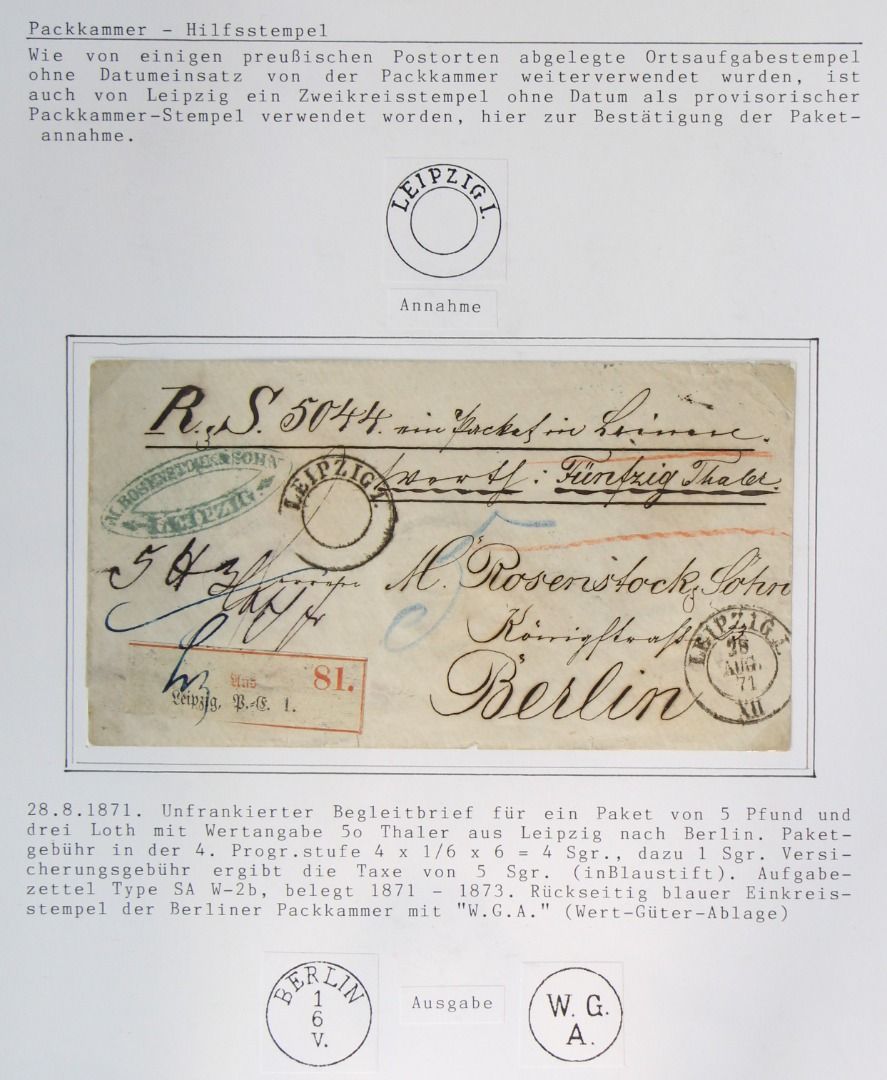 Packkammer - Hilfsstempel
Wie von einigen preußischen Postorten abgelegte Ortsaufgabestempel
ohne Datumeinsatz von der Packkammer weiterverwendet wurden, ist
auch von Leipzig ein Zweikreisstempel ohne Datum als provisorischer
Packkammer-Stempel verwendet worden, hier zur Bestätigung der Paket-
annahme.
LEIPZIG I.
Annahme
R. S. 5044. ein Packet in Leinen.
Werth: Fünfzig Thaler.
M. ROSENSTOCK & SOHN
LEIPZIG.
LEIPZIG I.
5
5 ℔ 3
M. Rosenstock & Sohn
Königstraß
Berlin
LEIPZIG I.
28
AUG.
71
XII
Aus 81.
Leipzig. P.-E. 1.
28.8.1871. Unfrankierter Begleitbrief für ein Paket von 5 Pfund und
drei Loth mit Wertangabe 5o Thaler aus Leipzig nach Berlin. Paket-
gebühr in der 4. Progr.stufe 4 x 1/6 x 6 = 4 Sgr., dazu 1 Sgr. Versi-
cherungsgebühr ergibt die Taxe von 5 Sgr. (inBlaustift). Aufgabe-
zettel Type SA W-2b, belegt 1871 - 1873. Rückseitig blauer Einkreis-
stempel der Berliner Packkammer mit "W.G.A." (Wert-Güter-Ablage)
BERLIN
1
6
V.
Ausgabe
W. G.
A.